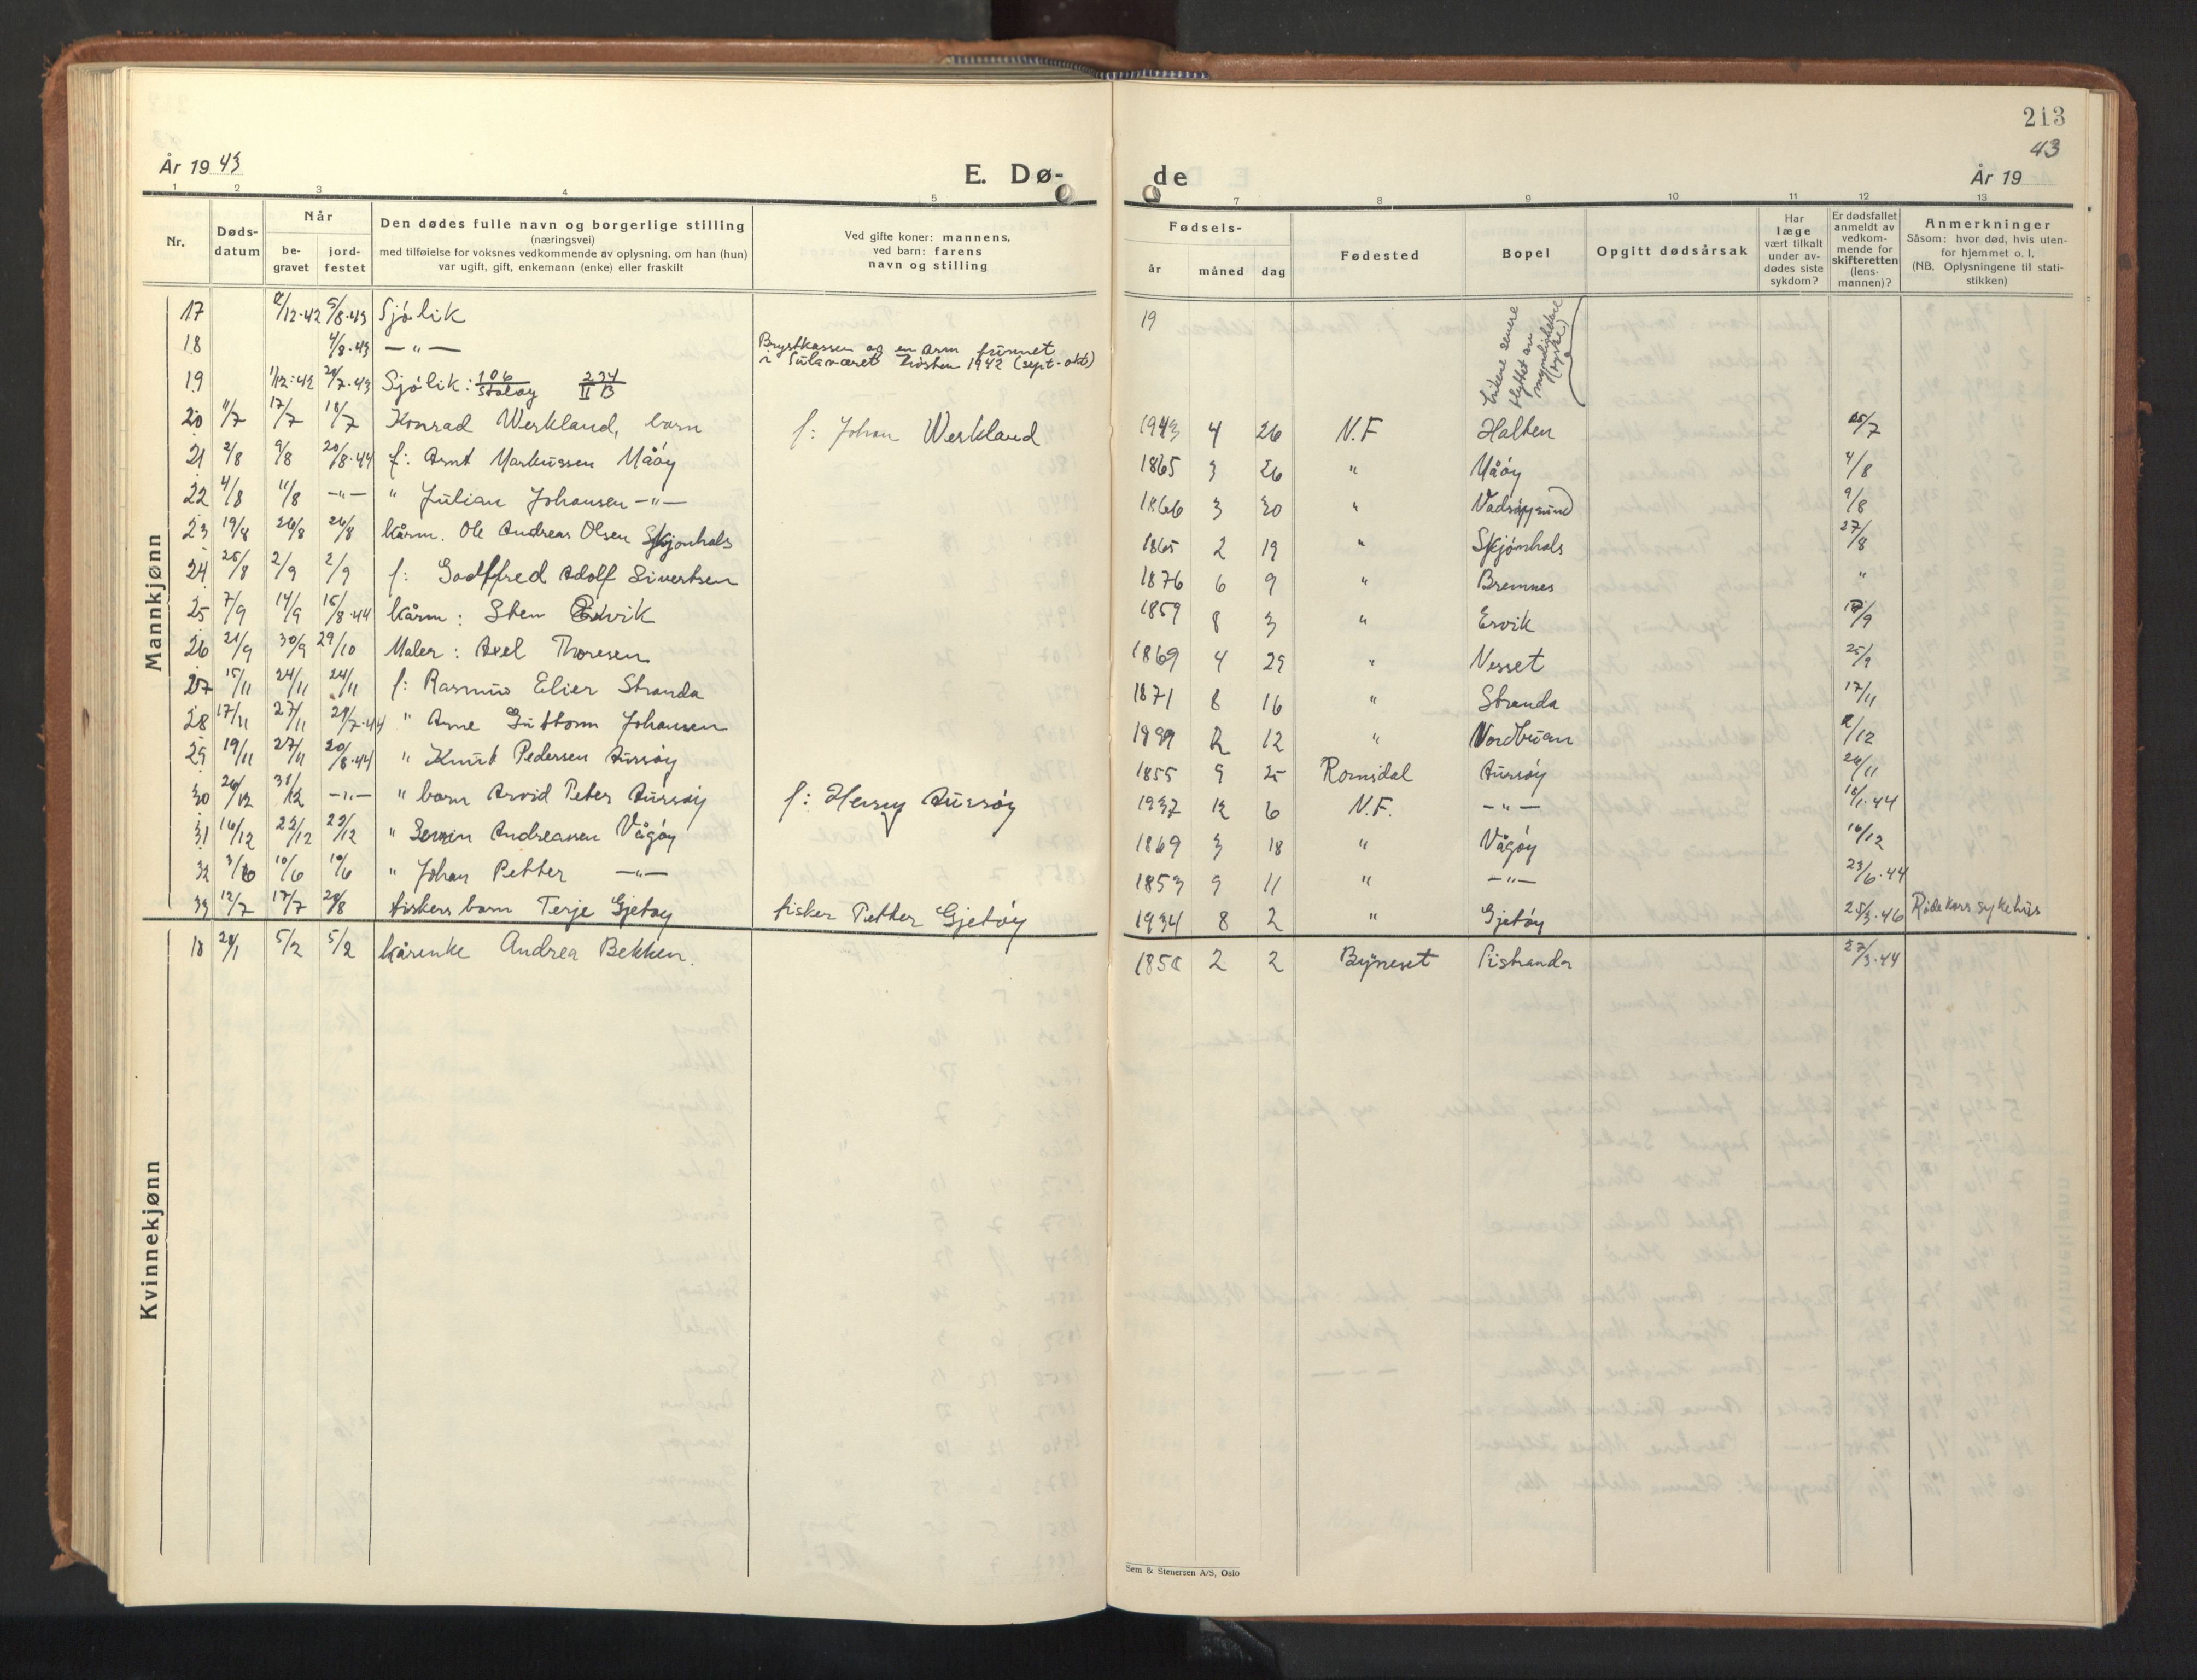 213
År 19 43
E. Dø-
de
43
År 19
1 2 3 4 5 7 8 9 10 11 12 13
Nr.
Døds-
datum
Når
be-
gravet
jord-
festet
Den dødes fulle navn og borgerlige stilling
(næringsvei)
med tilføielse for voksnes vedkommende av oplysning, om han (hun)
var ugift, gift, enkemann (enke) eller fraskilt
Ved gifte koner: mannens,
ved barn: farens
navn og stilling
Fødsels-
år måned dag
Fødested
Bopel
Opgitt dødsårsak
Har
læge
vært tilkalt
under av-
dødes siste
sykdom?
Er dødsfallet
anmeldt av
vedkom-
mende for
skifteretten
(lens-
mannen)?
Anmerkninger
Såsom: hvor død, hvis uten-
for hjemmet o. l.
(NB. Oplysningene til stati-
stikken)
Mannkjønn
17 /12-42 5/8-43 Sjølik 19
18 4/8-43 —"— Brystkassen og en arm funnet
i Sulaværet høsten 1942 (sept-okt)
19 1/12-42 29/7-43 Sjølik: 106 234
II B
senere
flyttet av
myndighetene
(tyske)
20 11/7 17/7 18/7 Konrad Werkland, barn f: Johan Werkland 1943 4 26 N.F Halten 25/7
21 2/8 9/8 20/8-44 f: Arnt Markussen Måøy 1865 3 26 " Måøy 4/8
22 4/8 11/8 —"— " Julian Johansen —"— 1866 3 30 " 9/8
23 19/8 26/8 26/8 kårm. Ole Andreas Olsen Skjønhals 1865 2 19 " Skjønhals 27/8
24 25/8 2/9 2/9 f: Godtfred Adolf Sivertsen 1876 6 9 " Bremnes "
25 7/9 14/9 15/8-44 kårm: Sten Ervik 1859 8 3 " Ervik /9
26 21/9 30/9 29/10 Maler: Axel Thoresen 1869 4 29 " Nesset 25/9
27 15/11 24/11 24/11 f: Rasmus Elier Stranda 1871 8 16 " Stranda 17/11
28 17/11 27/11 29/7-44 " Arne Guttorm Johansen 1899 2 12 " Nordbuan 2/12
29 19/11 27/11 20/8-44 " Knut Pedersen Aursøy 1855 9 25 Romsdal Aursøy 24/11
30 26/12 31/12 —"— " barn Arvid Peter Aursøy f: Henry Aursøy 1937 12 6 N.F. —"— 18/1-44
31 16/12 23/12 23/12 " Sevrin Andreassen Vågøy 1869 3 18 " Vågøy 16/12
32 3/6 10/6 10/6 " Johan Petter —"— 1853 9 11 " —"— 23/6-44
33 12/7 17/7 29/8 fiskers barn Terje Gjetøy fisker Petter Gjetøy 1934 8 2 " Gjetøy 25/3-46 Røde kors sykehus
Kvinnekjønn
18 29/1 5/2 5/2 kårenke Andrea Bekken. 1858 2 2 Byneset Sistranda 27/3-44
Sem & Stenersen A/S, Oslo